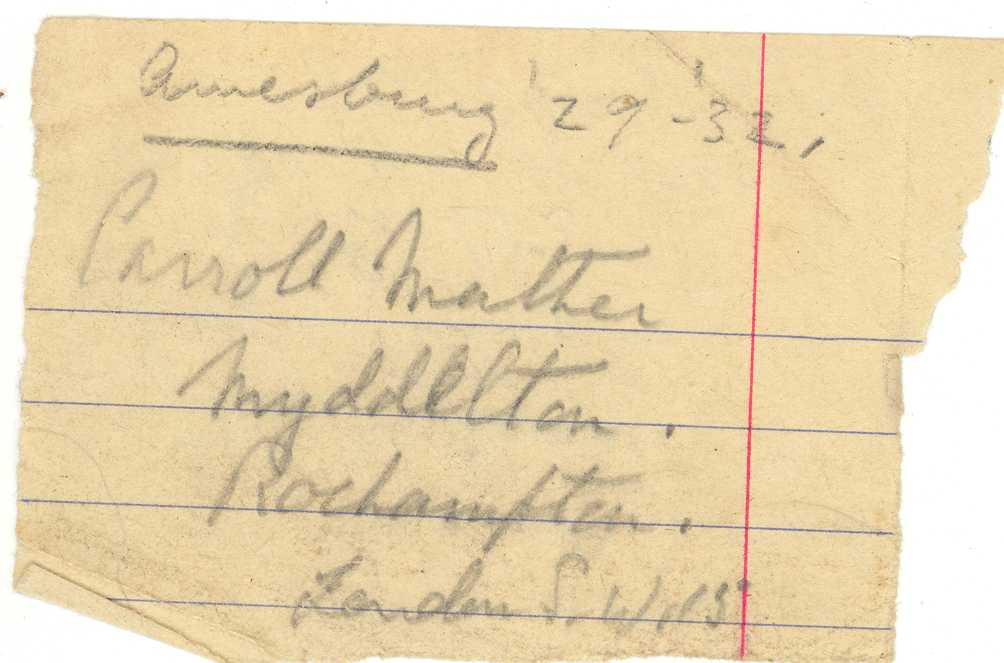 Amesbury '29-'32,
Carroll Mather
Myddelton.
Roehampton.
London S.W.15